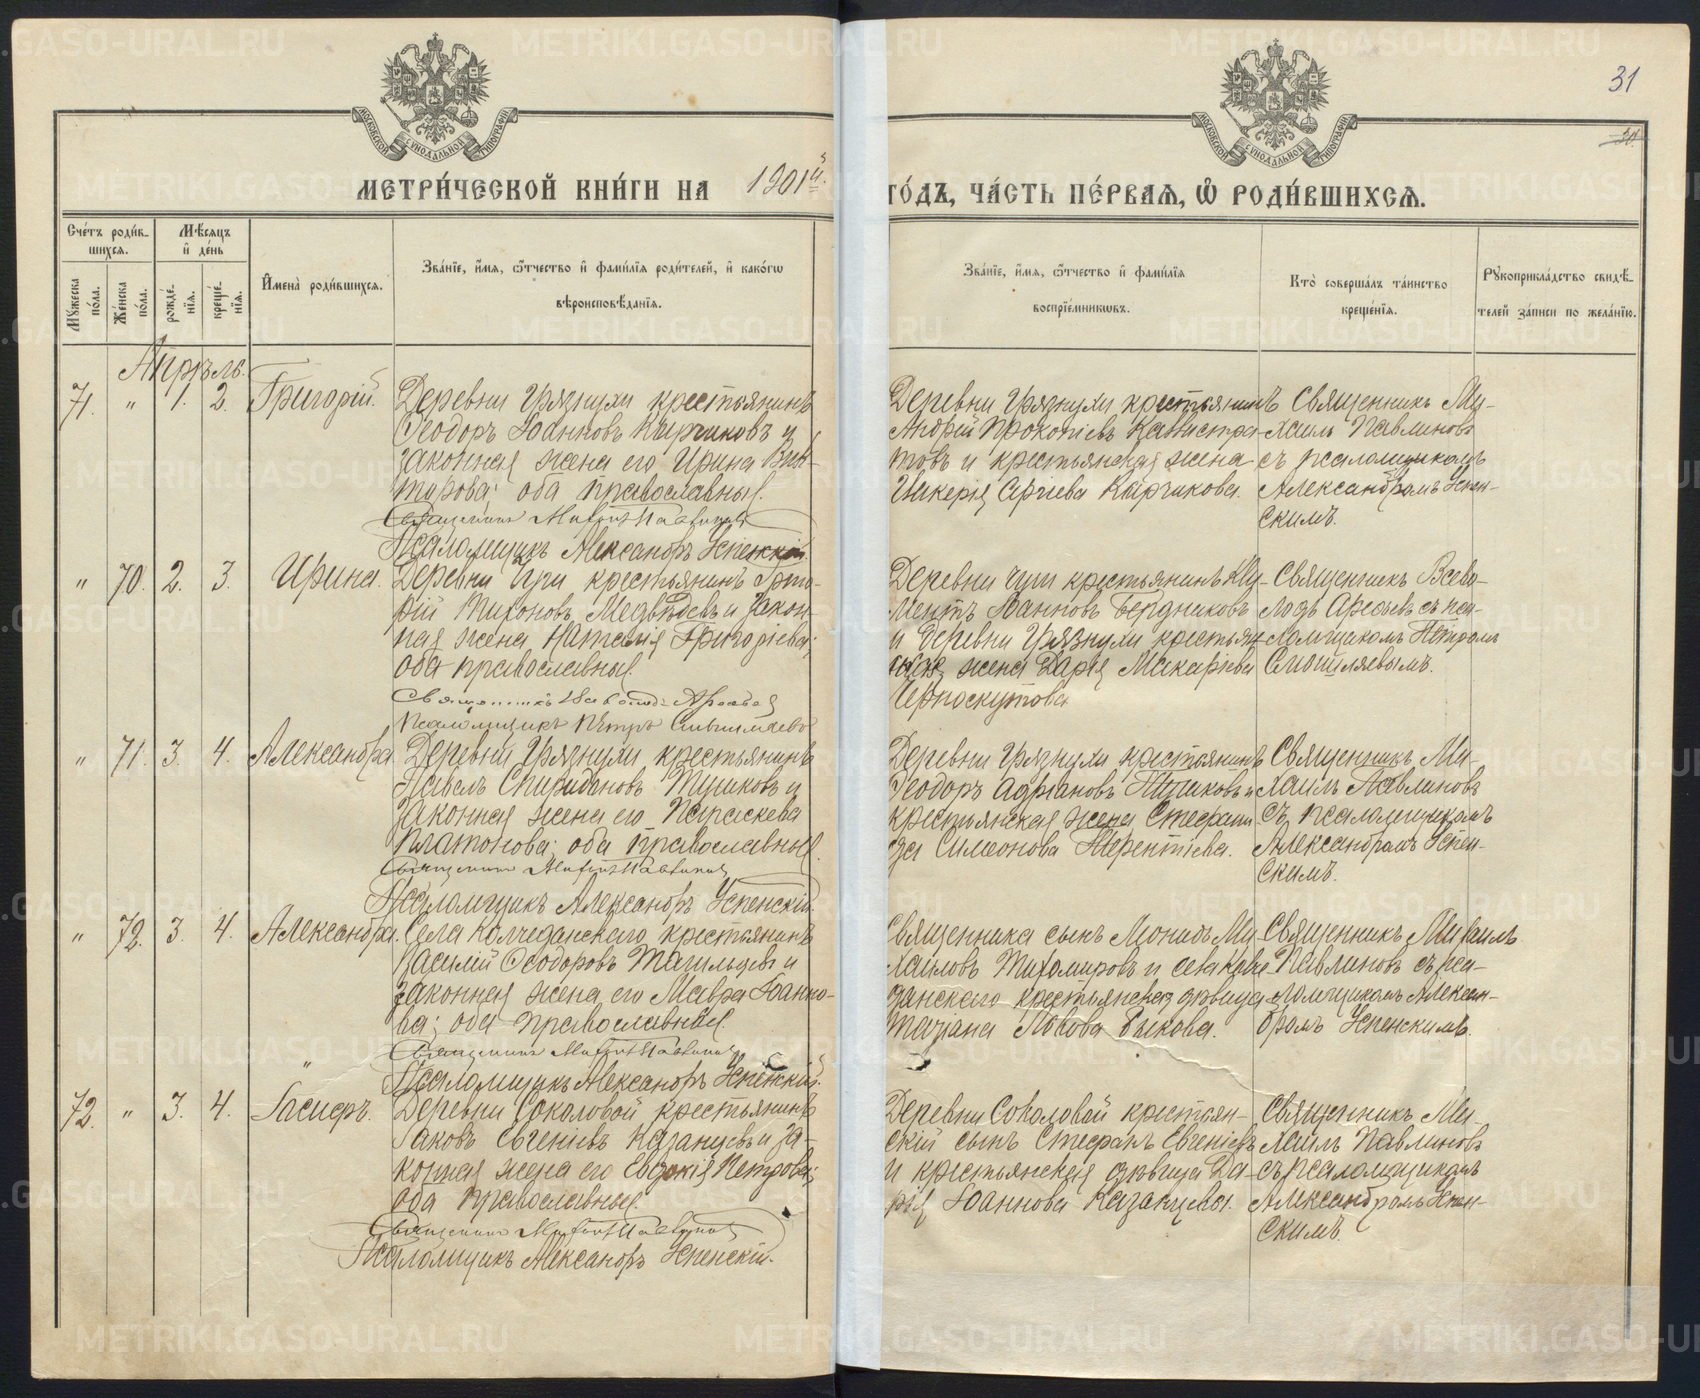 31
30
МОСКОВСКОЙ СѴНОДАЛЬНОЙ ТИПОГРАФІИ
МОСКОВСКОЙ СѴНОДАЛЬНОЙ ТИПОГРАФІИ
МЕТРИ́ЧЕСКОЙ КНИ́ГИ НА 1901й.
ГО́ДЪ, ЧА́СТЬ ПЕ́РВАЯ, Ѽ РОДИ́ВШИХСЯ.
Сче́тъ роди́вшихся.
Мѣ́сяцъ и҆ де́нь
Му́жеска по́ла.
Же́нска по́ла.
рожде́нїя.
креще́нїя.
И҆мена̀ роди́вшихся.
Зва́нїе, и҆́мя, ѻ҆́тчество и҆ фами́лїя роди́телей, и҆ како́гѡ
вѣроисповѣ́данїя.
Зва́нїе, и҆́мя, ѻ҆́тчество и҆ фами́лїя
воспрїе́мникѡвъ.
Кто̀ соверша́лъ та́инство
креще́нїя.
Рꙋкоприкла́дство свидѣ́-
телей за́писи по жела́нїю.
Апрѣль.
71. " 1. 2. Григорій.
Деревни Грязнухи крестьянинъ
Ѳеодоръ Іоанновъ Карчиковъ и
законная жена его Ирина Вик-
торова; оба православные.
Священникъ Михаилъ Павлиновъ
Псаломщикъ Александръ Успенскій.
Деревни Грязнухи крестьянинъ
Андрей Прокопіевъ Калистра-
товъ и крестьянская жена
Гликерія Сергіева Карчикова.
Священникъ Ми-
хаилъ Павлиновъ
съ псаломщикомъ
Александромъ Успен-
скимъ.
" 70. 2. 3. Ирина.
Деревни Чуги крестьянинъ Григо-
рій Тихоновъ Медвѣдевъ и закон-
ная жена Наталія Григоріева;
оба православные.
Священникъ Всеволодъ Арефьевъ
Псаломщикъ Петръ
Деревни Чуги крестьянинъ Кли-
ментъ Іоанновъ Бердниковъ
и деревни Грязнухи крестьян-
ская жена Дарія Макаріева
Черноскутова
Священникъ Всево-
лодъ Арефьевъ съ пса-
ломщикомъ Петромъ
" 71. 3. 4. Александра
Деревни Грязнухи крестьянинъ
Павелъ Спиридоновъ Тушковъ и
законная жена его Параскева
Платонова; оба православные.
Священникъ Михаилъ Павлиновъ
Псаломщикъ Александръ Успенскій.
Деревни Грязнухи крестьянинъ
Ѳеодоръ Адріановъ Тушковъ и
крестьянская жена Стефани-
да Симеонова Терентіева.
Священникъ Ми-
хаилъ Павлиновъ
съ псаломщикомъ
Александромъ Успен-
скимъ.
" 72. 3. 4. Александра.
Села Колчеданскаго крестьянинъ
Василій Ѳеодоровъ Тагильцевъ и
законная жена его Мавра Іоанно-
ва; оба православные.
Священникъ Михаилъ Павлиновъ
Псаломщикъ Александръ Успенскій.
Священника сынъ Леонидъ Ми-
хаиловъ Тихомировъ и села Колче-
данскаго крестьянская дѣвица
Татіана Львова Быкова.
Священникъ Михаилъ
Павлиновъ съ пса-
ломщикомъ Алексан-
дромъ Успенскимъ.
72. " 3. 4. Іасиѳъ.
Деревни Соколовой крестьянинъ
Іаковъ Евгеніевъ Казанцевъ и за-
конная жена его Евдокія Петрова;
оба православные.
Священникъ Михаилъ Павлиновъ
Псаломщикъ Александръ Успенскій.
Деревни Соколовой крестьян-
скій сынъ Стефанъ Евгеніевъ
и крестьянская дѣвица Да-
рія Іоаннова Казанцевы.
Священникъ Ми-
хаилъ Павлиновъ
съ псаломщикомъ
Александромъ Успен-
скимъ.
METRIKI.GASO-URAL.RU